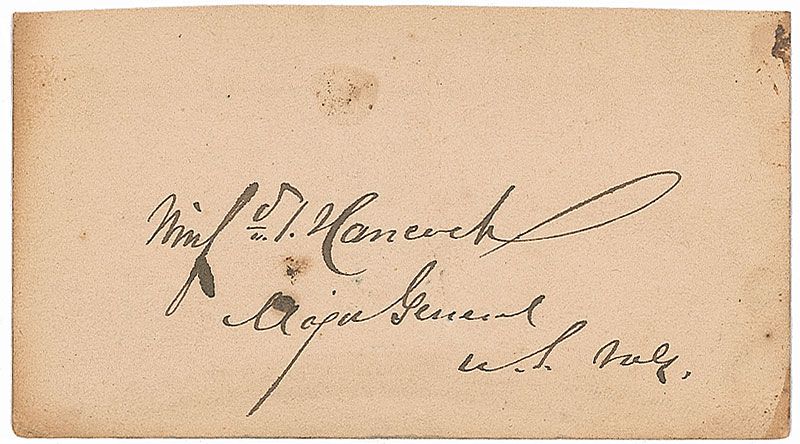 Winfd. S. Hancock
Major General
U.S. Vols.